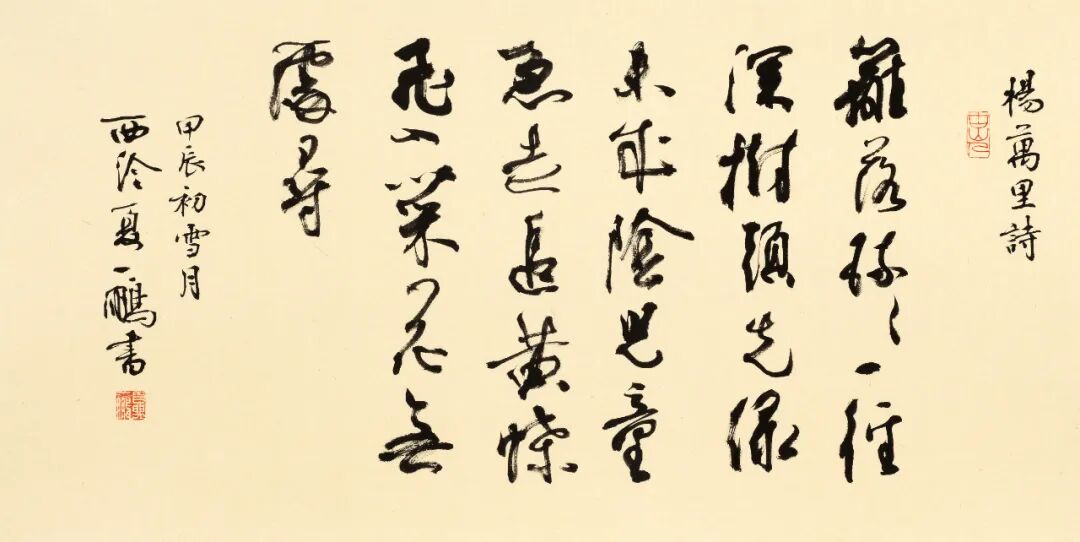 楊萬里詩
籬落疎〻一徑
深樹頭先綠
未成陰兒童
急走追黃蝶
飛入菜花無
處尋
甲辰初雪月
西泠夏一鵬書